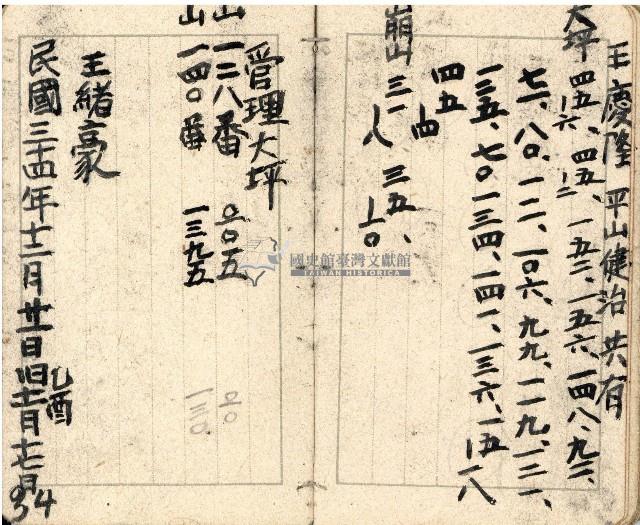 王慶隆 平山健治 共有
大坪 四五、四五、一五三、一五六、一四八、九二、
一六 一二
七一、八〇、一二、一〇六、九九、一一九、一三一、
一三五、七〇、一三四、一四一、一三六、一五
一八
四五
一四
崩山 三一、三五、
一八 一〇
管理大坪
山 一二八番 〇〇五
山 一四〇番 一三九五
王緒豪
民國三十四年十二月廿一日旧十一月十七日
乙酉
34
國史館臺灣文獻館
TAIWAN HISTORICA